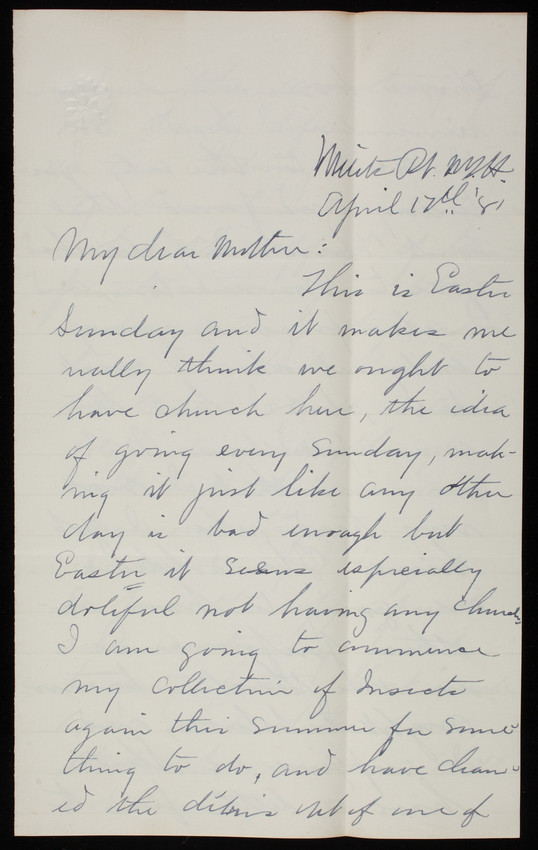 April 17th '81
My dear Mother:
This is Easter
Sunday and it makes me
really think we ought to
have church here, the idea
of going every Sunday, mak-
ing it just like any other
day is bad enough but
Easter it seems especially
doleful not having any church.
I am going to commence
my collection of Insects
again this summer for some-
thing to do, and have clean-
ed the débris out of one of